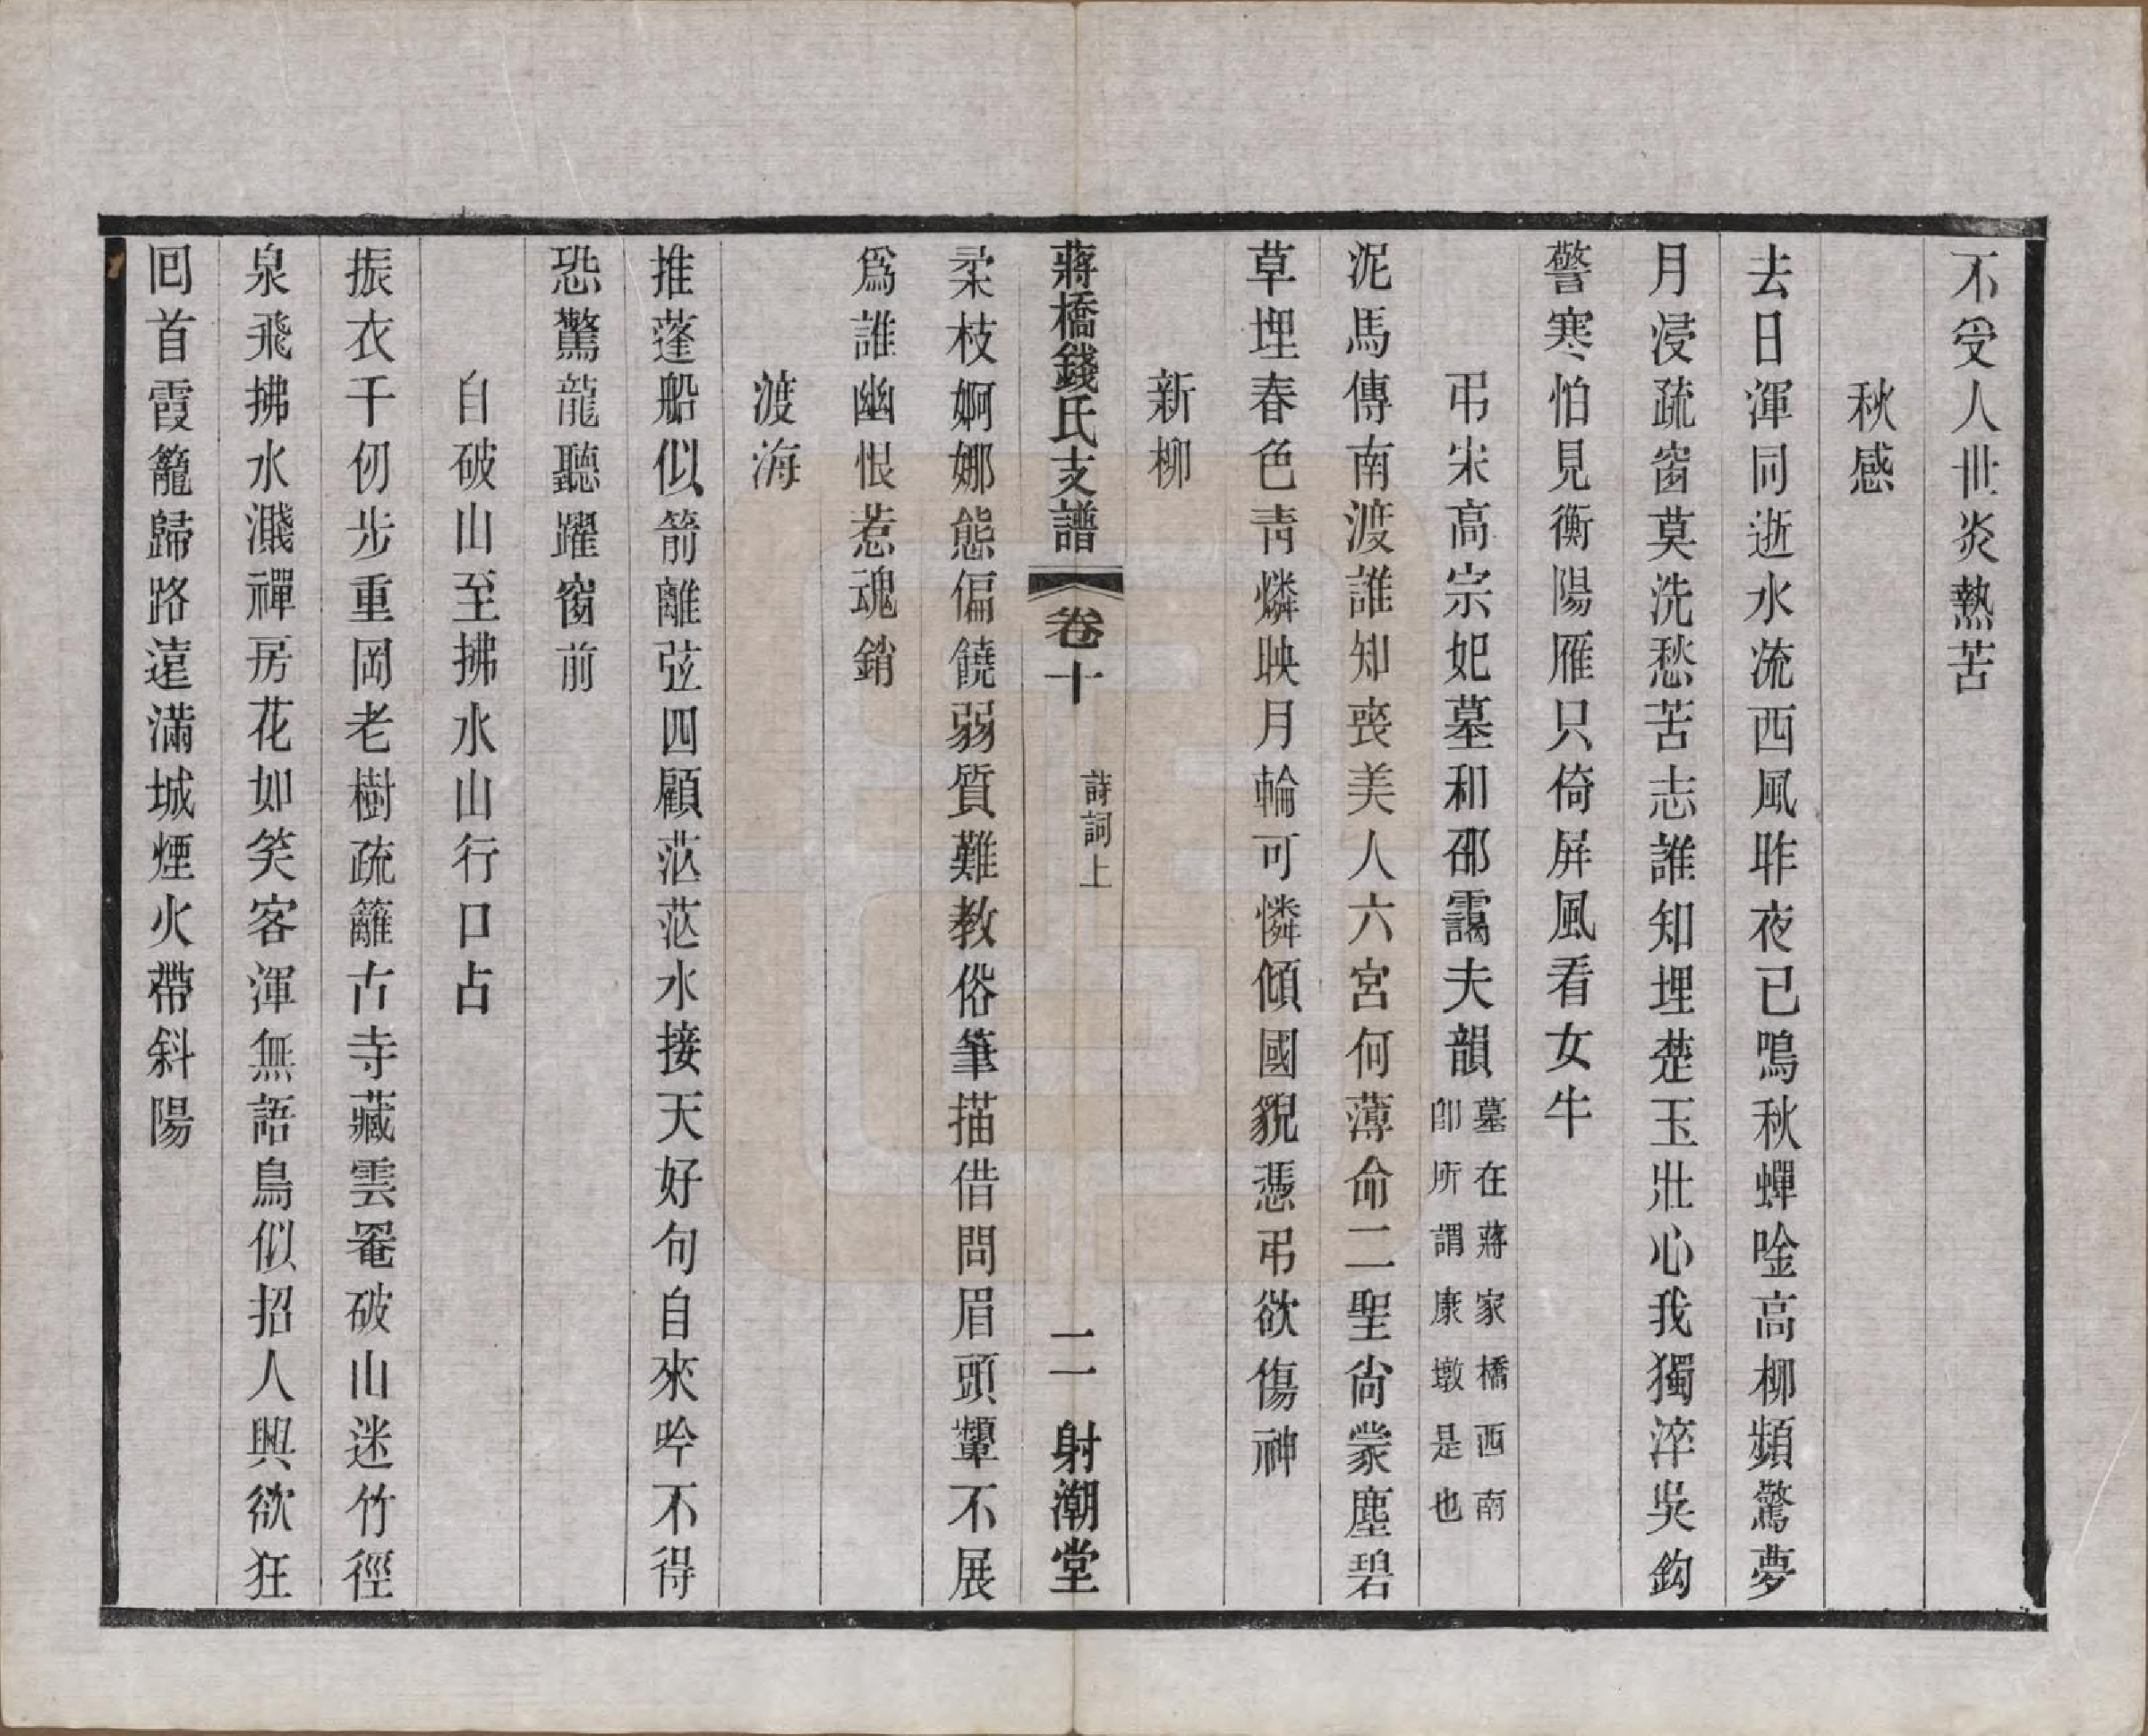 不受人世炎熱苦
秋感
去日渾同逝水流西風昨夜已鳴秋蟬唫高柳頻驚夢
月浸疏窗莫洗愁苦志誰知埋楚玉壯心我獨淬吳鈎
警寒怕見衡陽雁只倚屏風看女牛
弔宋高宗妃墓和邵靄夫韻墓在蔣家橋西南
卽所謂康墩是也
泥馬傳南渡誰知喪美人六宮何薄命二聖尙蒙塵碧
草埋春色靑燐映月輪可憐傾國貌憑弔欲傷神
新柳
蔣橋錢氏支譜 卷十 詩詞上 二一 射潮堂
柔枝婀娜態偏饒弱質難敎俗筆描借問眉頭顰不展
爲誰幽恨惹魂銷
渡海
推蓬船似箭離弦四顧茫茫水接天好句自來吟不得
恐驚龍聽躍窗前
自破山至拂水山行口占
振衣千仞步重岡老樹疏籬古寺藏雲罨破山迷竹徑
泉飛拂水濺禪房花如笑客渾無語鳥似招人興欲狂
回首霞籠歸路遠滿城煙火帶斜陽